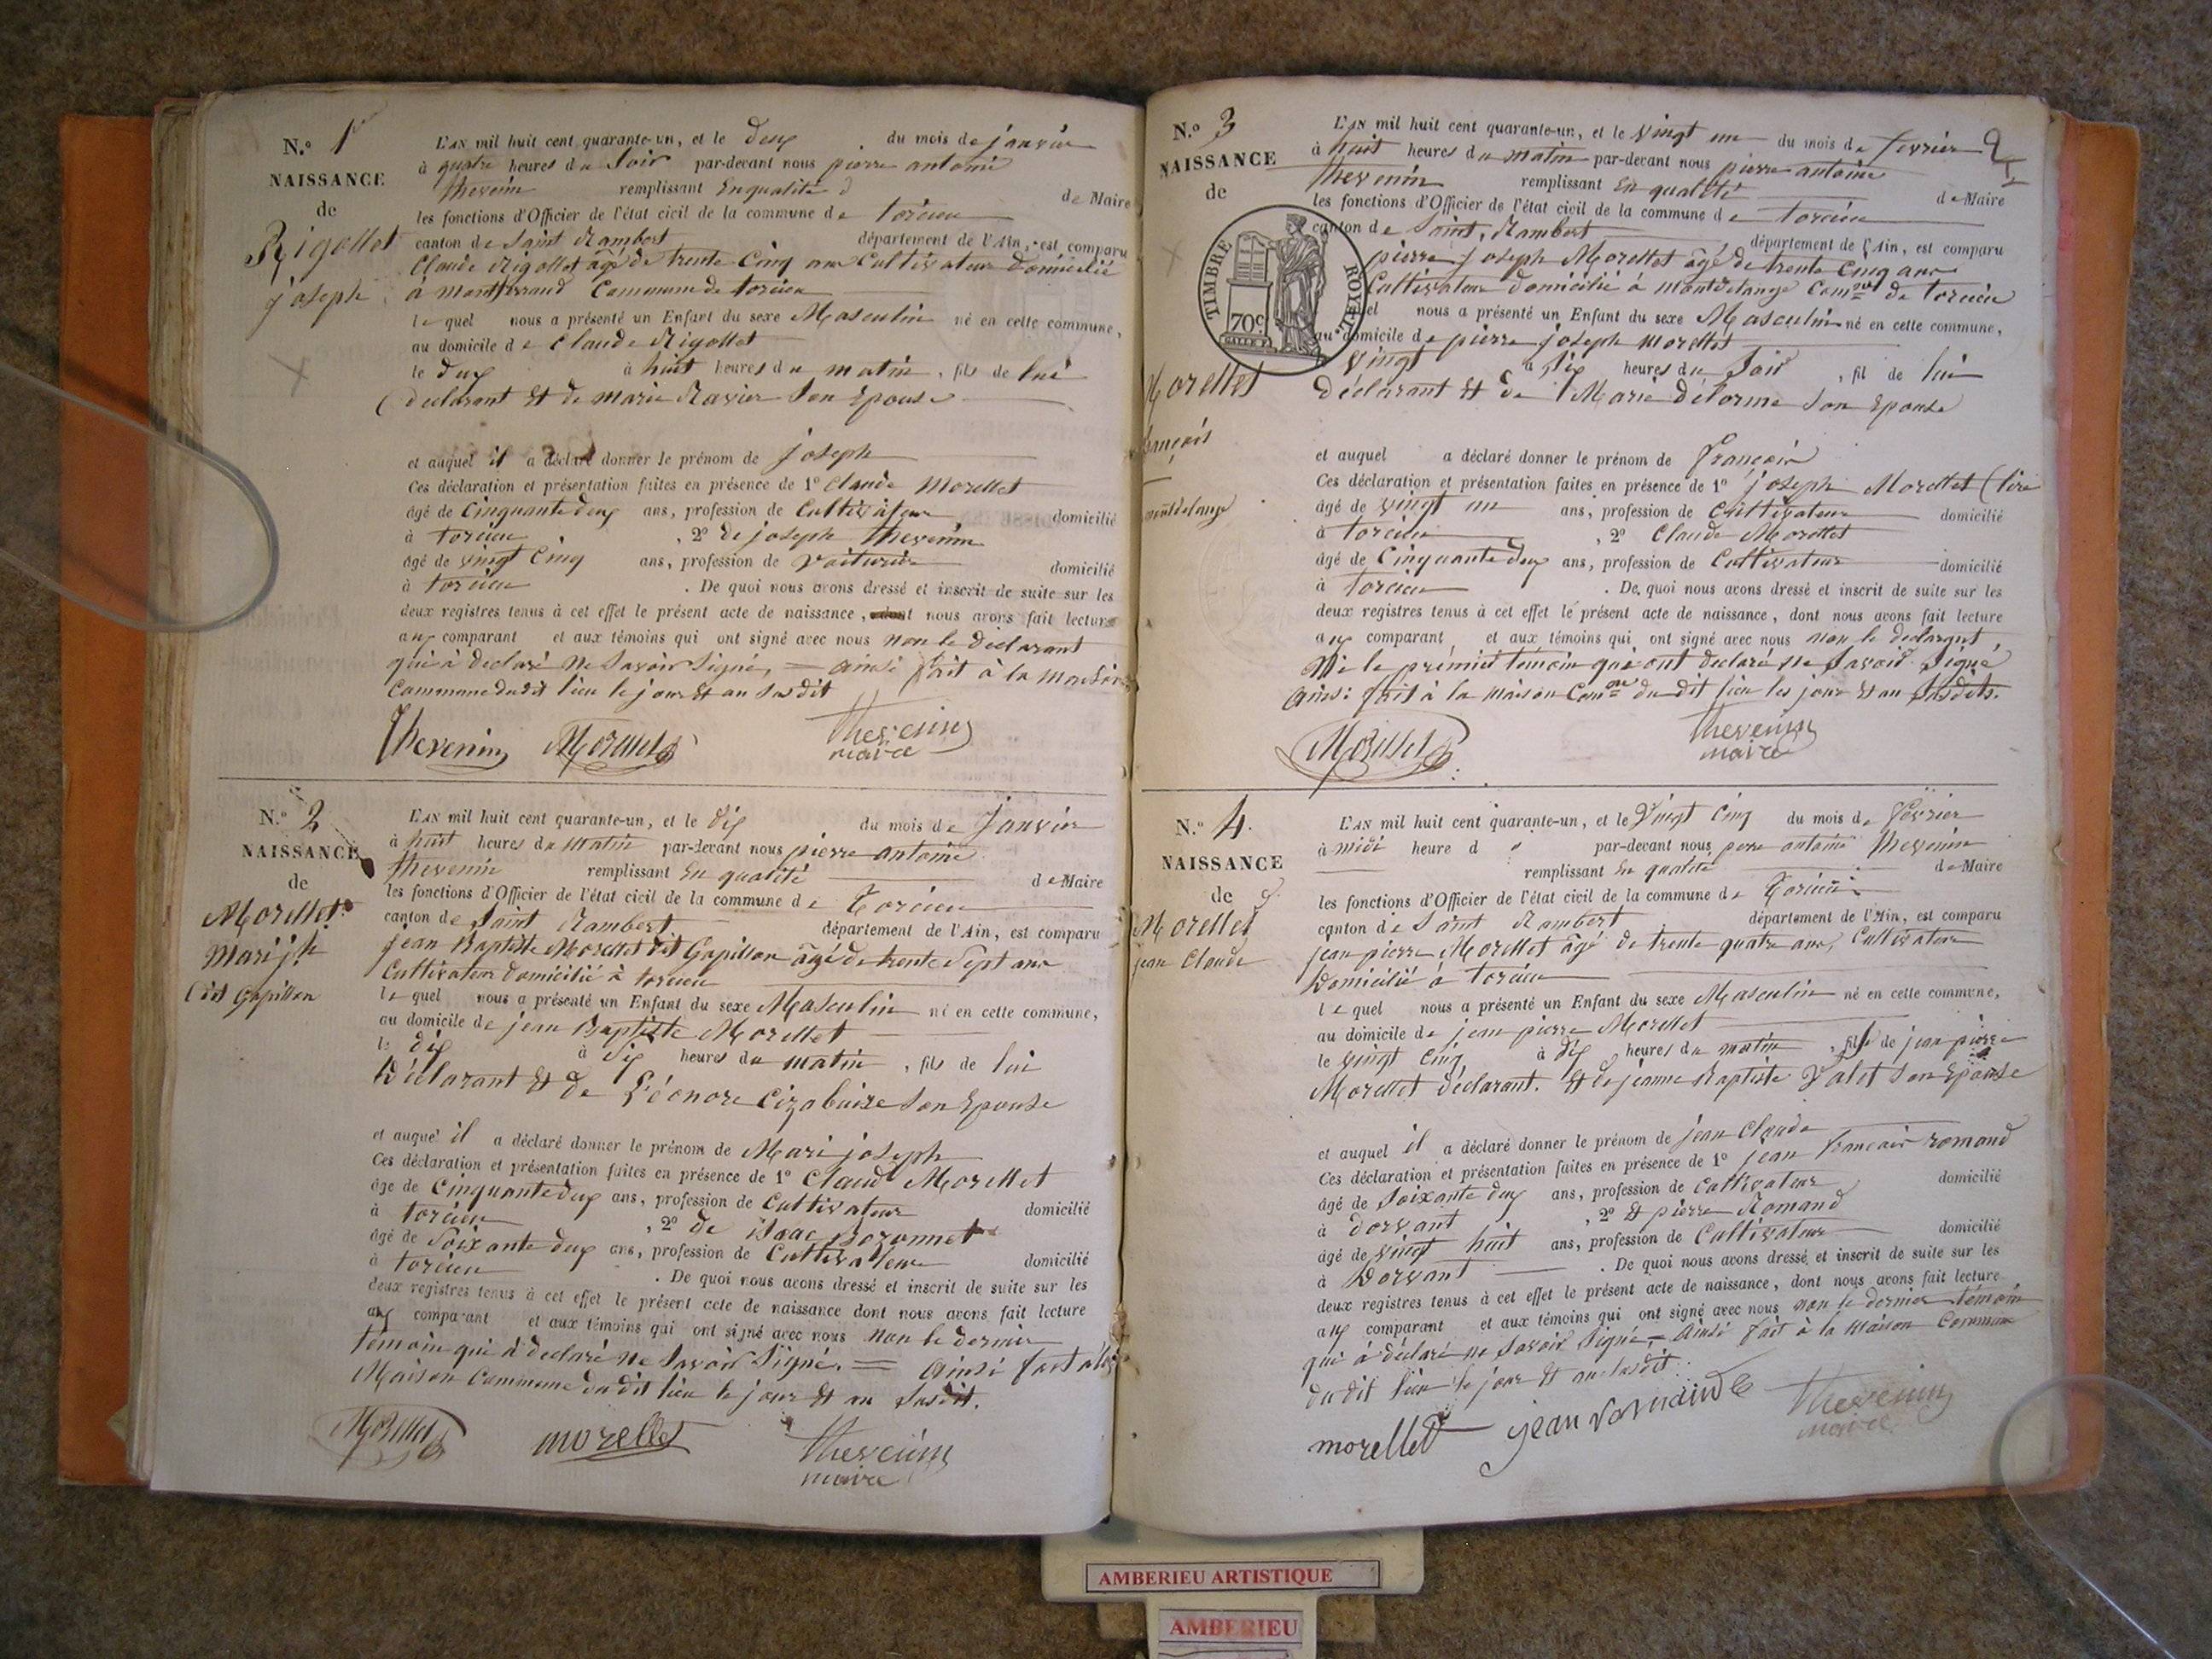 N.° 1er
NAISSANCE
de
Rigollet
joseph
L'AN mil huit cent quarante-un, et le deux du mois de janvier
à quatre heures du Soir par-devant nous pierre antoine
thevenin remplissant En qualité d de Maire
les fonctions d'Officier de l'état civil de la commune de torcieu
canton de Saint Rambert département de l'Ain, est comparu
Claude Rigollet âgé de trente Cinq ans Cultivateur domicilié
à montferrand Commune de torcieu
lequel nous a présenté un Enfant du sexe Masculin né en cette commune,
au domicile de Claude Rigollet
le deux à huit heures du matin, fils de lui
déclarant et de marie Ravier Son Epouse
et auquel il a déclaré donner le prénom de joseph
Ces déclaration et présentation faites en présence de 1° Claude Morellet
âgé de Cinquante deux ans, profession de Cultivateur domicilié
à torcieu, 2° de joseph thevenin
âgé de vingt Cinq ans, profession de Voiturier domicilié
à torcieu. De quoi nous avons dressé et inscrit de suite sur les
deux registres tenus à cet effet le présent acte de naissance, dont nous avons fait lecture
aux comparant et aux témoins qui ont signé avec nous non le déclarant
qui à declaré ne Savoir Signé, = ainsi fait à la maison
Commune du dit lieu le jour et an Susdit
Thevenin Morellet thevenin
maire
N.° 2
NAISSANCE
de
Morellet
Mari jh
dit Gapillon
L'AN mil huit cent quarante-un, et le dix du mois de Janvier
à huit heures du matin par-devant nous pierre antoine
thevenin remplissant En qualité de Maire
les fonctions d'Officier de l'état civil de la commune de Torcieu
canton de Saint Rambert département de l'Ain, est comparu
jean Baptiste Morellet dit Gapillon âgé de trente Sept ans
Cultivateur domicilié à torcieu
lequel nous a présenté un Enfant du sexe Masculin né en cette commune,
au domicile de jean Baptiste Morellet
le dix à Six heures du matin, fils de lui
Déclarant et de Léonore Cizabuire Son Epouse
et auquel il a déclaré donner le prénom de Mari joseph
Ces déclaration et présentation faites en présence de 1° Claude Morellet
âgé de Cinquante deux ans, profession de Cultivateur domicilié
à torcieu, 2° de isaac Bozonnet
âgé de Soixante deux ans, profession de Cultivateur domicilié
à torcieu. De quoi nous avons dressé et inscrit de suite sur les
deux registres tenus à cet effet le présent acte de naissance dont nous avons fait lecture
aux comparant et aux témoins qui ont signé avec nous non le dernier
témoin qui à declaré ne Savoir Signé. = Ainsi fait à la
Maison Commune du dit lieu le jour et an Susdit.
Morellet morellet thevenin
maire
N.° 3
NAISSANCE
de
TIMBRE ROYAL
70c
Morellet
françois
montdelange
L'AN mil huit cent quarante-un, et le vingt un du mois de fevrier
à huit heures du matin par-devant nous pierre antoine
thevenin remplissant En qualité de Maire
les fonctions d'Officier de l'état civil de la commune de torcieu
canton de Saint, Rambert département de l'Ain, est comparu
pierre joseph Morellet âgé de trente Cinq ans
Cultivateur domicilié à montdelange Comne de torcieu
lequel nous a présenté un Enfant du sexe Masculin né en cette commune,
au domicile de pierre joseph morellet
le vingt à Six heures du Soir, fil de lui
déclarant et de Marie délorme Son Epouse
et auquel a déclaré donner le prénom de françois
Ces déclaration et présentation faites en présence de 1° joseph Morellet
âgé de vingt un ans, profession de Cultivateur domicilié
à torcieu, 2° Claude Morellet
âgé de Cinquante deux ans, profession de Cultivateur domicilié
à torcieu. De quoi nous avons dressé et inscrit de suite sur les
deux registres tenus à cet effet le présent acte de naissance, dont nous avons fait lecture
aux comparant et aux témoins qui ont signé avec nous non le declarant,
Ni le prémier témoin qui ont declaré ne Savoir Signé
Ainsi fait à la maison Comne du dit lieu les jour et an Susdits.
Morellet thevenin
maire
N.° 4.
NAISSANCE
de
Morellet
jean Claude
L'AN mil huit cent quarante-un, et le Vingt Cinq du mois de Février
à midi heure d par-devant nous pierre antoine thevenin
remplissant En qualité de Maire
les fonctions d'Officier de l'état civil de la commune de Torcieu
canton de Saint Rambert département de l'Ain, est comparu
jean pierre Morellet âgé de trente quatre ans, Cultivateur
Domicilié à torcieu
lequel nous a présenté un Enfant du sexe Masculin né en cette commune,
au domicile de jean pierre Morellet
le vingt Cinq à dix heures du matin, fils de jean pierre
Morellet déclarant. et de jeanne Baptiste Valet Son Epouse
et auquel il a déclaré donner le prénom de jean Claude
Ces déclaration et présentation faites en présence de 1° jean françois romand
âgé de Soixante deux ans, profession de Cultivateur domicilié
à dorvant, 2° et pierre Romand
âgé de vingt huit ans, profession de Cultivateur domicilié
à Dorvant. De quoi nous avons dressé et inscrit de suite sur les
deux registres tenus à cet effet le présent acte de naissance, dont nous avons fait lecture
aux comparant et aux témoins qui ont signé avec nous non le dernier témoin
qui à déclaré ne Savoir Signé = Ainsi fait à la maison Commune
du dit lieu le jour et an Susdit.
morellet jean romand thevenin
maire
AMBERIEU ARTISTIQUE
AMBERIEU